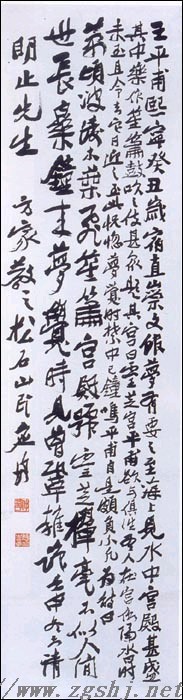 王平甫熙寧癸丑歲宿直崇文館夢有要之至海上見水中宮殿甚盛
其中樂作笙簫鼓吹之伎甚眾題其宮曰靈芝宮平甫欲與俱往有人在宮側隔水曰時
未至且令去它日迎之至此恍惚夢覺時禁中已鐘鳴平甫自是頗自負不凡為詩曰
萬頃波濤木葉飛笙簫宮殿號靈芝揮毫不似人間
世長樂鐘來夢覺時見曾鞏雜識壬申冬請
明止先生
方家教之松石山民
www.zgshj.net